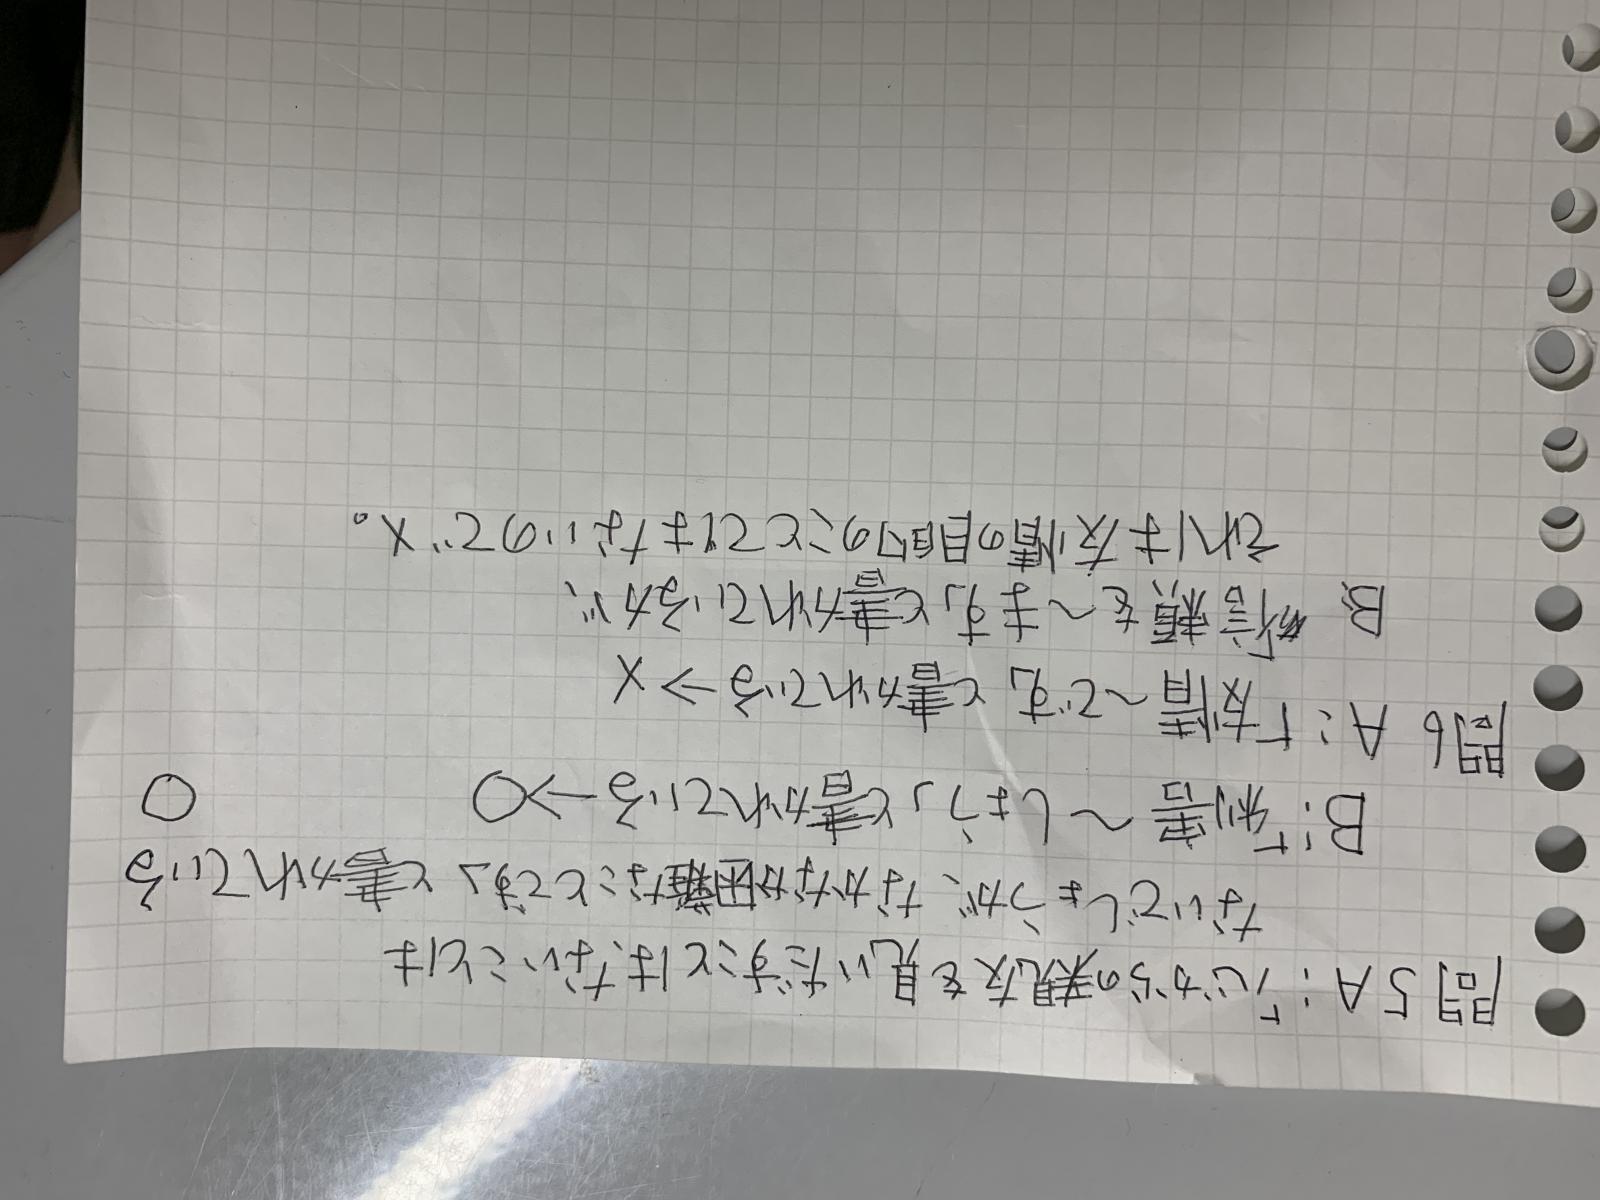 問5 A:「心からの親友を見いだすことはないことは
ないでしょうが、なかなか困難なことです」と書かれている
B:「利害〜しょう」と書かれている→○ ○
問6 A:「友情〜です」と書かれている→×
B: 「信頼を〜ます」と書かれているが、
それは友情の目的のことではないので×。